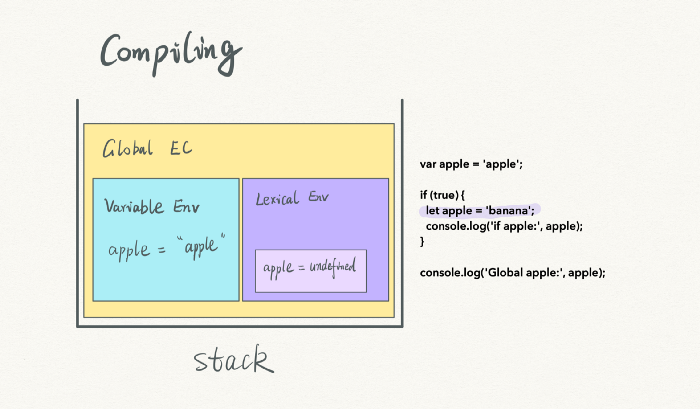 Compiling
Global EC
Variable Env
apple = "apple"
Lexical Env
apple = undefined
stack
var apple = 'apple';
if (true) {
let apple = 'banana';
console.log('if apple:', apple);
}
console.log('Global apple:', apple);